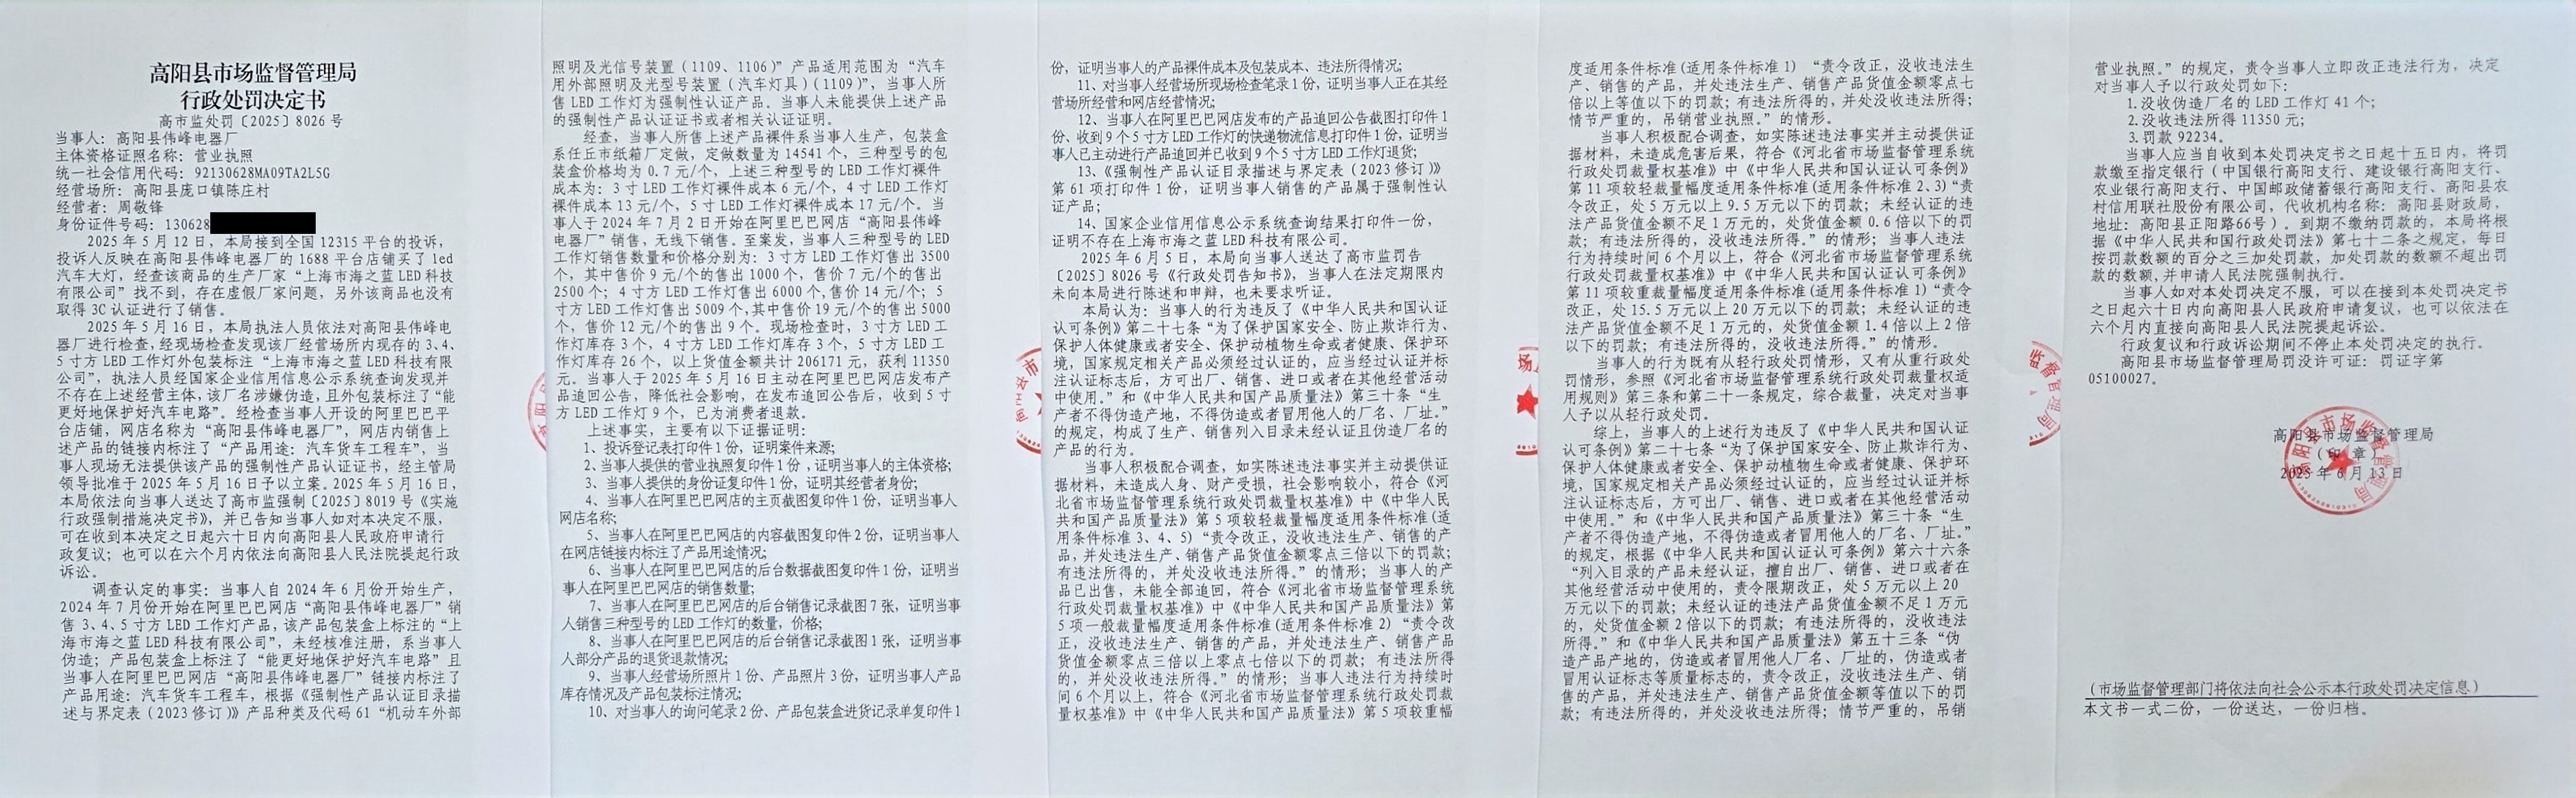 高阳县市场监督管理局
行政处罚决定书
高市监处罚〔2025〕8026 号
当事人：高阳县伟峰电器厂
主体资格证照名称：营业执照
统一社会信用代码：92130628MA09TA2L5G
经营场所：高阳县庞口镇陈庄村
经营者：周敬锋
身份证件号码：130628
2025 年 5 月 12 日，本局接到全国 12315 平台的投诉，
投诉人反映在高阳县伟峰电器厂的 1688 平台店铺买了 led
汽车大灯，经查该商品的生产厂家“上海市海之蓝 LED 科技
有限公司”找不到，存在虚假厂家问题，另外该商品也没有
取得 3C 认证进行了销售。
2025 年 5 月 16 日，本局执法人员依法对高阳县伟峰电
器厂进行检查，经现场检查发现该厂经营场所内现存的 3、4、
5 寸方 LED 工作灯外包装标注“上海市海之蓝 LED 科技有限
公司”，执法人员经国家企业信用信息公示系统查询发现并
不存在上述经营主体，该厂名涉嫌伪造，且外包装标注了“能
更好地保护好汽车电路”。经检查当事人开设的阿里巴巴平
台店铺，网店名称为“高阳县伟峰电器厂”，网店内销售上
述产品的链接内标注了“产品用途：汽车货车工程车”，当
事人现场无法提供该产品的强制性产品认证证书，经主管局
领导批准于 2025 年 5 月 16 日予以立案。2025 年 5 月 16 日，
本局依法向当事人送达了高市监强制〔2025〕8019 号《实施
行政强制措施决定书》，并已告知当事人如对本决定不服，
可在收到本决定之日起六十日内向高阳县人民政府申请行
政复议；也可以在六个月内依法向高阳县人民法院提起行政
诉讼。
调查认定的事实：当事人自 2024 年 6 月份开始生产，
2024 年 7 月份开始在阿里巴巴网店“高阳县伟峰电器厂”销
售 3、4、5 寸方 LED 工作灯产品，该产品包装盒上标注的“上
海市海之蓝 LED 科技有限公司”，未经核准注册，系当事人
伪造；产品包装盒上标注了“能更好地保护好汽车电路”且
当事人在阿里巴巴网店“高阳县伟峰电器厂”链接内标注了
产品用途：汽车货车工程车，根据《强制性产品认证目录描
述与界定表（2023 修订）》产品种类及代码 61“机动车外部
照明及光信号装置（1109、1106）”产品适用范围为“汽车
用外部照明及光型号装置（汽车灯具）（1109）”，当事人所
售 LED 工作灯为强制性认证产品。当事人未能提供上述产品
的强制性产品认证证书或者相关认证证明。
经查，当事人所售上述产品裸件系当事人生产，包装盒
系任丘市纸箱厂定做，定做数量为 14541 个，三种型号的包
装盒价格均为 0.7 元/个，上述三种型号的 LED 工作灯裸件
成本为：3 寸 LED 工作灯裸件成本 6 元/个，4 寸 LED 工作灯
裸件成本 13 元/个，5 寸 LED 工作灯裸件成本 17 元/个。当
事人于 2024 年 7 月 2 日开始在阿里巴巴网店“高阳县伟峰
电器厂”销售，无线下销售。至案发，当事人三种型号的 LED
工作灯销售数量和价格分别为：3 寸方 LED 工作灯售出 3500
个，其中售价 9 元/个的售出 1000 个，售价 7 元/个的售出
2500 个；4 寸方 LED 工作灯售出 6000 个,售价 14 元/个；5
寸方 LED 工作灯售出 5009 个,其中售价 19 元/个的售出 5000
个，售价 12 元/个的售出 9 个。现场检查时，3 寸方 LED 工
作灯库存 3 个，4 寸方 LED 工作灯库存 3 个，5 寸方 LED 工
作灯库存 26 个，以上货值金额共计 206171 元，获利 11350
元。当事人于 2025 年 5 月 16 日主动在阿里巴巴网店发布产
品追回公告，降低社会影响，在发布追回公告后，收到 5 寸
方 LED 工作灯 9 个，已为消费者退款。
上述事实，主要有以下证据证明：
1、投诉登记表打印件 1 份，证明案件来源；
2、当事人提供的营业执照复印件 1 份，证明当事人的主体资格；
3、当事人提供的身份证复印件 1 份，证明其经营者身份；
4、当事人在阿里巴巴网店的主页截图复印件 1 份，证明当事人
网店名称；
5、当事人在阿里巴巴网店的内容截图复印件 2 份，证明当事人
在网店链接内标注了产品用途情况；
6、当事人在阿里巴巴网店的后台数据截图复印件 1 份，证明当
事人在阿里巴巴网店的销售数量；
7、当事人在阿里巴巴网店的后台销售记录截图 7 张，证明当事
人销售三种型号的 LED 工作灯的数量，价格；
8、当事人在阿里巴巴网店的后台销售记录截图 1 张，证明当事
人部分产品的退货退款情况；
9、当事人经营场所照片 1 份、产品照片 3 份，证明当事人产品
库存情况及产品包装标注情况；
10、对当事人的询问笔录 2 份、产品包装盒进货记录单复印件 1
份，证明当事人的产品裸件成本及包装成本、违法所得情况；
11、对当事人经营场所现场检查笔录 1 份，证明当事人正在其经
营场所经营和网店经营情况；
12、当事人在阿里巴巴网店发布的产品追回公告截图打印件 1
份、收到 9 个 5 寸方 LED 工作灯的快递物流信息打印件 1 份，证明当
事人已主动进行产品追回并已收到 9 个 5 寸方 LED 工作灯退货；
13、《强制性产品认证目录描述与界定表（2023 修订）》
第 61 项打印件 1 份，证明当事人销售的产品属于强制性认
证产品；
14、国家企业信用信息公示系统查询结果打印件一份，
证明不存在上海市海之蓝 LED 科技有限公司。
2025 年 6 月 5 日，本局向当事人送达了高市监罚告
〔2025〕8026 号《行政处罚告知书》，当事人在法定期限内
未向本局进行陈述和申辩，也未要求听证。
本局认为：当事人的行为违反了《中华人民共和国认证
认可条例》第二十七条“为了保护国家安全、防止欺诈行为、
保护人体健康或者安全、保护动植物生命或者健康、保护环
境，国家规定相关产品必须经过认证的，应当经过认证并标
注认证标志后，方可出厂、销售、进口或者在其他经营活动
中使用。”和《中华人民共和国产品质量法》第三十条“生
产者不得伪造产地，不得伪造或者冒用他人的厂名、厂址。”
的规定，构成了生产、销售列入目录未经认证且伪造厂名的
产品的行为。
当事人积极配合调查，如实陈述违法事实并主动提供证
据材料，未造成人身、财产受损，社会影响较小，符合《河
北省市场监督管理系统行政处罚裁量权基准》中《中华人民
共和国产品质量法》第 5 项较轻裁量幅度适用条件标准（适
用条件标准 3、4、5）“责令改正，没收违法生产、销售的产
品，并处违法生产、销售产品货值金额零点三倍以下的罚款；
有违法所得的，并处没收违法所得。”的情形；当事人的产
品已出售，未能全部追回，符合《河北省市场监督管理系统
行政处罚裁量权基准》中《中华人民共和国产品质量法》第
5 项一般裁量幅度适用条件标准（适用条件标准 2）“责令改
正，没收违法生产、销售的产品，并处违法生产、销售产品
货值金额零点三倍以上零点七倍以下的罚款；有违法所得
的，并处没收违法所得。”的情形；当事人违法行为持续时
间 6 个月以上，符合《河北省市场监督管理系统行政处罚裁
量权基准》中《中华人民共和国产品质量法》第 5 项较重幅
度适用条件标准（适用条件标准 1）“责令改正，没收违法生
产、销售的产品，并处违法生产、销售产品货值金额零点七
倍以上等值以下的罚款；有违法所得的，并处没收违法所得；
情节严重的，吊销营业执照。”的情形。
当事人积极配合调查，如实陈述违法事实并主动提供证
据材料，未造成危害后果，符合《河北省市场监督管理系统
行政处罚裁量权基准》中《中华人民共和国认证认可条例》
第 11 项较轻裁量幅度适用条件标准（适用条件标准 2、3）“责
令改正，处 5 万元以上 9.5 万元以下的罚款；未经认证的违
法产品货值金额不足 1 万元的，处货值金额 0.6 倍以下的罚
款；有违法所得的，没收违法所得。”的情形；当事人违法
行为持续时间 6 个月以上，符合《河北省市场监督管理系统
行政处罚裁量权基准》中《中华人民共和国认证认可条例》
第 11 项较重裁量幅度适用条件标准（适用条件标准 1）“责令
改正，处 15.5 万元以上 20 万元以下的罚款；未经认证的违
法产品货值金额不足 1 万元的，处货值金额 1.4 倍以上 2 倍
以下的罚款；有违法所得的，没收违法所得。”的情形。
当事人的行为既有从轻行政处罚情形，又有从重行政处
罚情形，参照《河北省市场监督管理系统行政处罚裁量权适
用规则》第三条和第二十一条规定，综合裁量，决定对当事
人予以从轻行政处罚。
综上，当事人的上述行为违反了《中华人民共和国认证
认可条例》第二十七条“为了保护国家安全、防止欺诈行为、
保护人体健康或者安全、保护动植物生命或者健康、保护环
境，国家规定相关产品必须经过认证的，应当经过认证并标
注认证标志后，方可出厂、销售、进口或者在其他经营活动
中使用。”和《中华人民共和国产品质量法》第三十条“生
产者不得伪造产地，不得伪造或者冒用他人的厂名、厂址。”
的规定，根据《中华人民共和国认证认可条例》第六十六条
“列入目录的产品未经认证，擅自出厂、销售、进口或者在
其他经营活动中使用的，责令限期改正，处 5 万元以上 20
万元以下的罚款；未经认证的违法产品货值金额不足 1 万元
的，处货值金额 2 倍以下的罚款；有违法所得的，没收违法
所得。”和《中华人民共和国产品质量法》第五十三条“伪
造产品产地的，伪造或者冒用他人厂名、厂址的，伪造或者
冒用认证标志等质量标志的，责令改正，没收违法生产、销
售的产品，并处违法生产、销售产品货值金额等值以下的罚
款；有违法所得的，并处没收违法所得；情节严重的，吊销
营业执照。”的规定，责令当事人立即改正违法行为，决定
对当事人予以行政处罚如下：
1.没收伪造厂名的 LED 工作灯 41 个；
2.没收违法所得 11350 元；
3.罚款 92234。
当事人应当自收到本处罚决定书之日起十五日内，将罚
款缴至指定银行（中国银行高阳支行、建设银行高阳支行、
农业银行高阳支行、中国邮政储蓄银行高阳支行、高阳县农
村信用联社股份有限公司，代收机构名称：高阳县财政局，
地址：高阳县正阳路66号）。到期不缴纳罚款的，本局将根
据《中华人民共和国行政处罚法》第七十二条之规定，每日
按罚款数额的百分之三加处罚款，加处罚款的数额不超出罚
款的数额,并申请人民法院强制执行。
当事人如对本处罚决定不服，可以在接到本处罚决定书
之日起六十日内向高阳县人民政府申请复议，也可以依法在
六个月内直接向高阳县人民法院提起诉讼。
行政复议和行政诉讼期间不停止本处罚决定的执行。
高阳县市场监督管理局罚没许可证：罚证字第
05100027。
高阳县市场监督管理局
（印 章）
2025 年 6 月 13 日
（市场监督管理部门将依法向社会公示本行政处罚决定信息）
本文书一式二份，一份送达，一份归档。